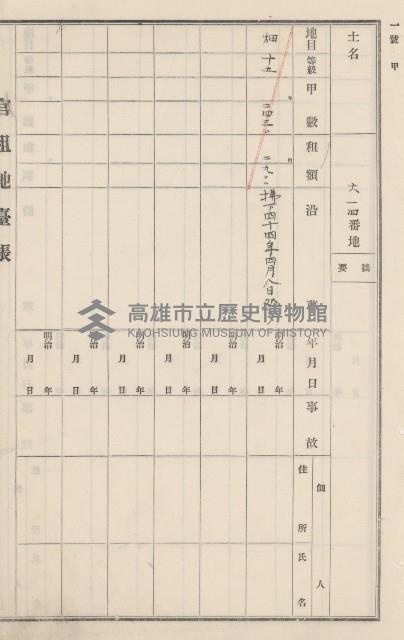 一號 甲
土名
六一四番地
摘要
地目
等級
甲數
租額
沿革
年月日
事故
佃人
住所
氏名
畑
十五
二四五〇
二九〇〇
拂下四十四年四月八日
明治 年 月 日
明治 年 月 日
明治 年 月 日
明治 年 月 日
明治 年 月 日
明治 年 月 日
官租地臺帳
高雄市立歷史博物館
KAOHSIUNG MUSEUM OF HISTORY